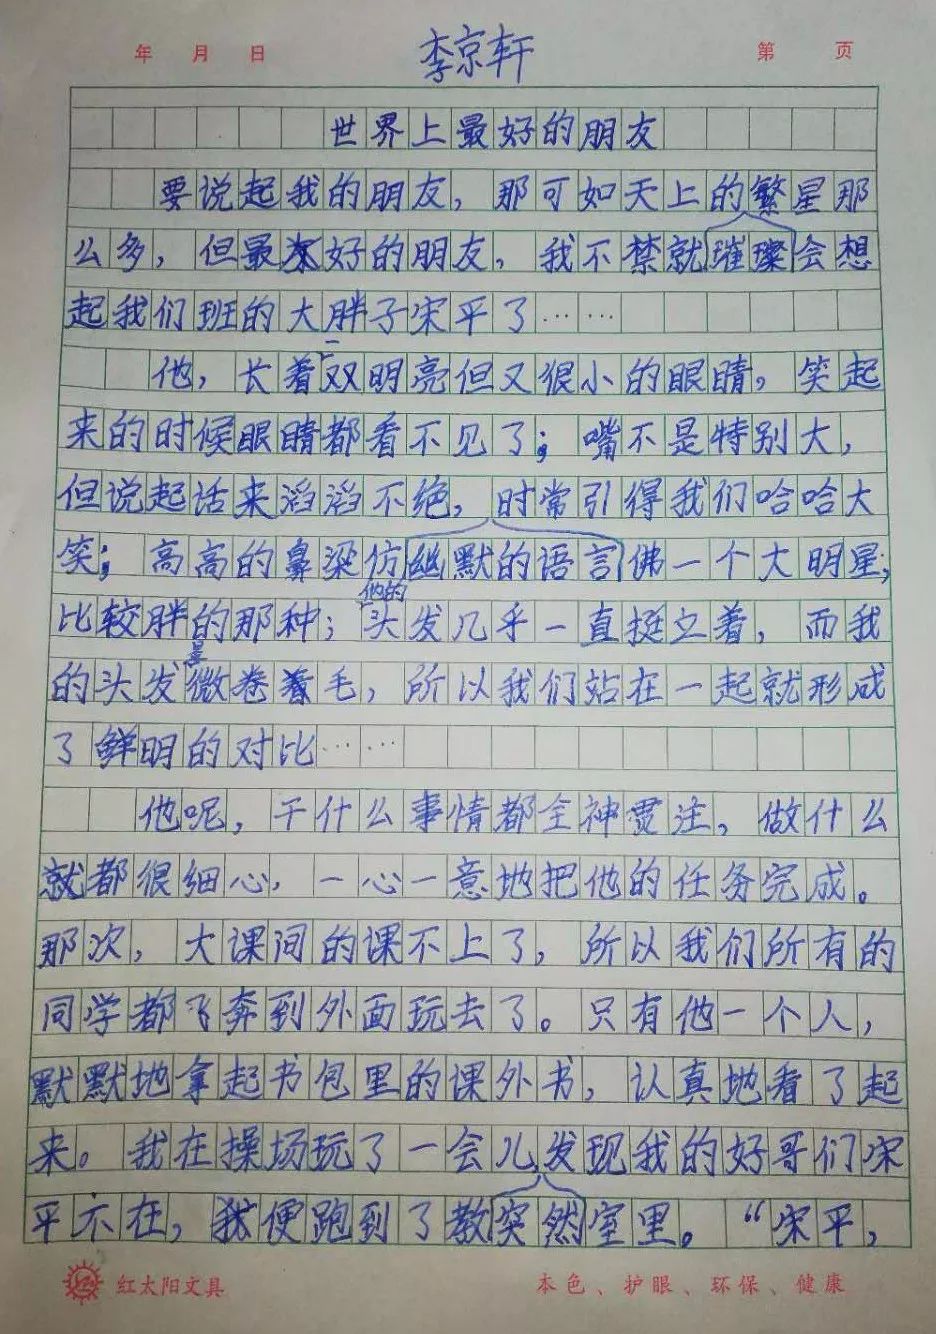 年 月 日 李京轩 第 页
世界上最好的朋友
要说起我的朋友，那可如天上的繁星那
么多，但最好的朋友，我不禁就璀璨会想
起我们班的大胖子宋平了……
一
他，长着双明亮但又很小的眼睛。笑起
来的时候眼睛都看不见了；嘴不是特别大，
但说起话来滔滔不绝，时常引得我们哈哈大
笑；高高的鼻梁仿幽默的语言佛一个大明星；
他的
比较胖的那种；头发几乎一直挺立着，而我
是
的头发微卷着毛，所以我们站在一起就形成
了鲜明的对比……
他呢，干什么事情都全神贯注，做什么
就都很细心，一心一意地把他的任务完成。
那次，大课间的课不上了，所以我们所有的
同学都飞奔到外面玩去了。只有他一个人，
默默地拿起书包里的课外书，认真地看了起
来。我在操场玩了一会儿发现我的好哥们宋
平不在，我便跑到了教突然室里。“宋平，
红太阳文具 本色、护眼、环保、健康